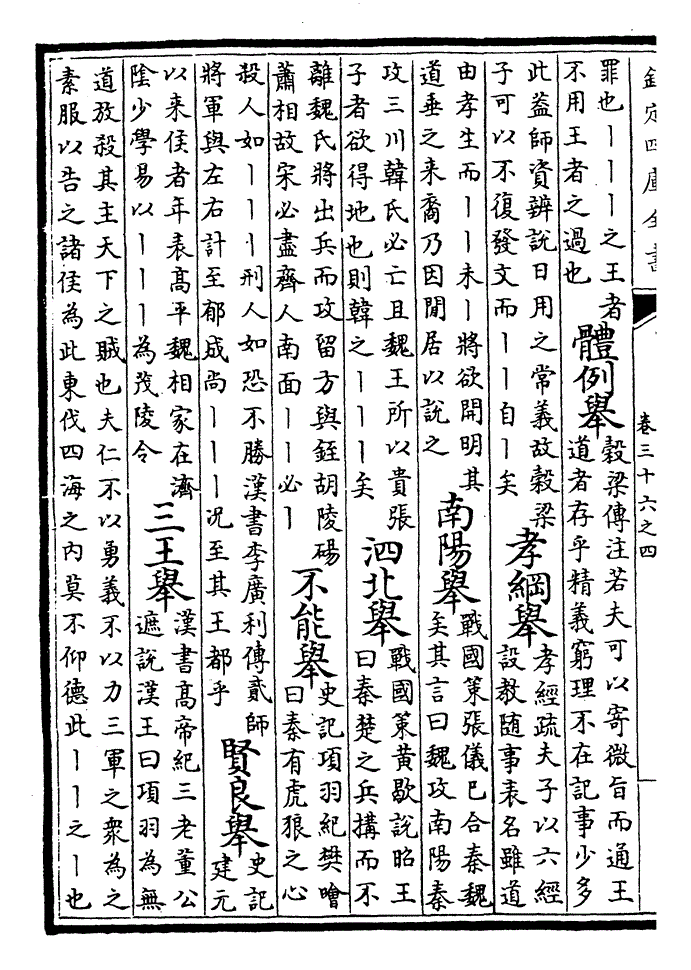 欽定四庫全書
卷三十六之四
罪也｜｜｜之王者
不用王者之過也
體例舉
穀梁傳注若夫可以寄微旨而通王
道者存乎精義窮理不在記事少多
此蓋師資辨說日用之常義故穀梁
子可以不復發文而｜｜自｜矣
孝綱舉
孝經疏夫子以六經
設教随事表名雖道
由孝生而｜｜未｜將欲開明其
道垂之来裔乃因閒居以說之
南陽舉
戰國策張儀巳合秦魏
矣其言曰魏攻南陽秦
攻三川韓氏必亡且魏王所以貴張
子者欲得地也則韓之｜｜｜矣
泗北舉
戰國策黄歇說昭王
曰秦楚之兵搆而不
離魏氏將出兵而攻留方與銍胡陵碭
蕭相故宋必盡齊人南面｜｜必｜
不能舉
史記項羽紀樊噲
曰秦有虎狼之心
殺人如｜｜｜刑人如恐不勝漢書李廣利傳貳師
將軍與左右計至郁成尚｜｜｜况至其王都乎
賢良舉
史記
建元
以来侯者年表高平魏相家在濟
隂少學易以｜｜｜為茂陵令
三王舉
漢書高帝紀三老董公
遮說漢王曰項羽為無
道放殺其主天下之賊也夫仁不以勇義不以力三軍之衆為之
素服以告之諸侯為此東伐四海之内莫不仰德此｜｜之｜也